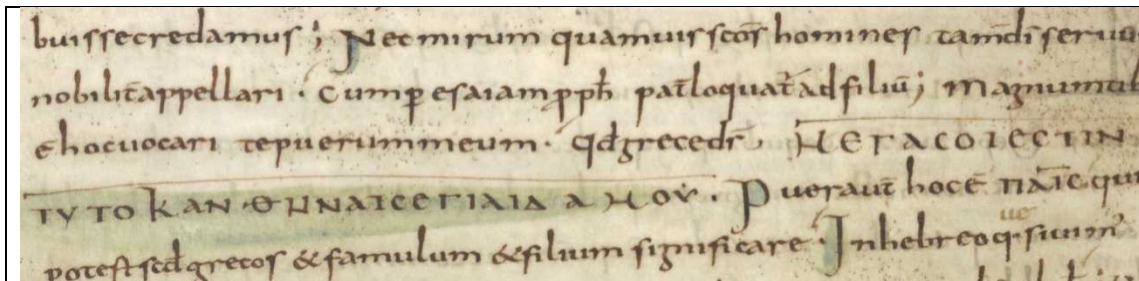 buissecredamus; Necmirum quamuis scōs homines tam̄ dī seruo
nobilit̄ appellari · Cum p̱ esaiam p̱pħ pat̄ loquat̄ ad filiū; magnum tib
ē hoc uocari te puerum meum · qđ grece dr̄ · ΜΕΓΑ CΟΙ ΕCΤΙΝ
ΤΥ ΤΟ ΚΑΝ·ΘΗΝΑΙ CΕ ΠΑΙΔΑ ΜΟΥ · Puer aut̄ hoc ē ΠΑΙC qui
potest scđ grecos & famulum & filium significare · In hebreo q· suum
ue